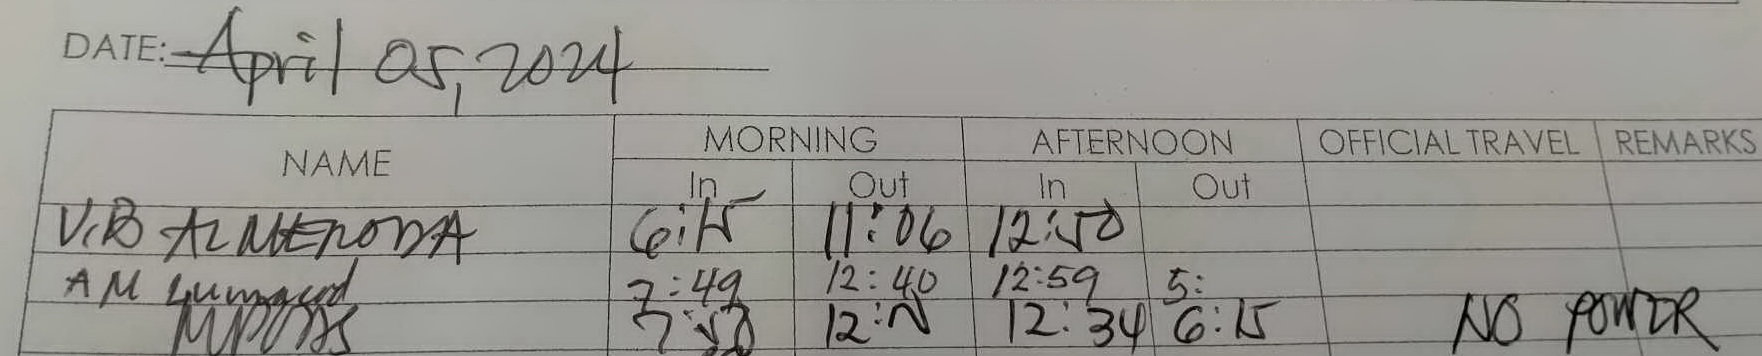 DATE: April 05, 2024
NAME MORNING AFTERNOON OFFICIAL TRAVEL REMARKS
In Out In Out
V.B ALMENODA 6:15 11:06 12:50
AM 7:49 12:40 12:59 5:
7:50 12: 12:34 6:15 NO POWER